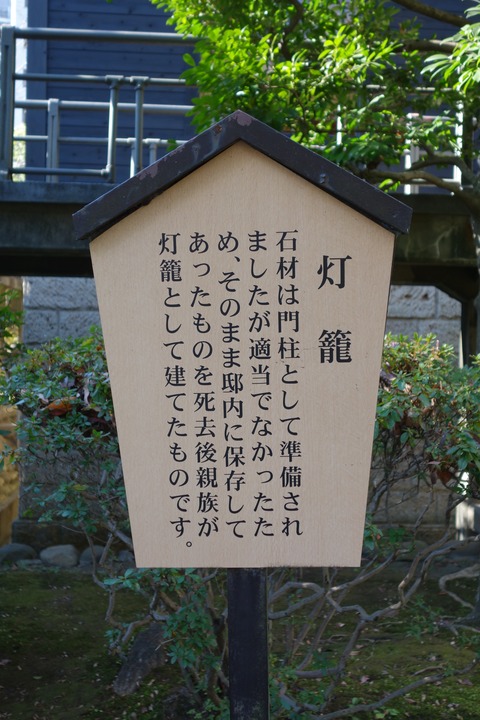 灯籠
石材は門柱として準備され
ましたが適当でなかったた
め、そのまま邸内に保存して
あったものを死去後親族が
灯籠として建てたものです。